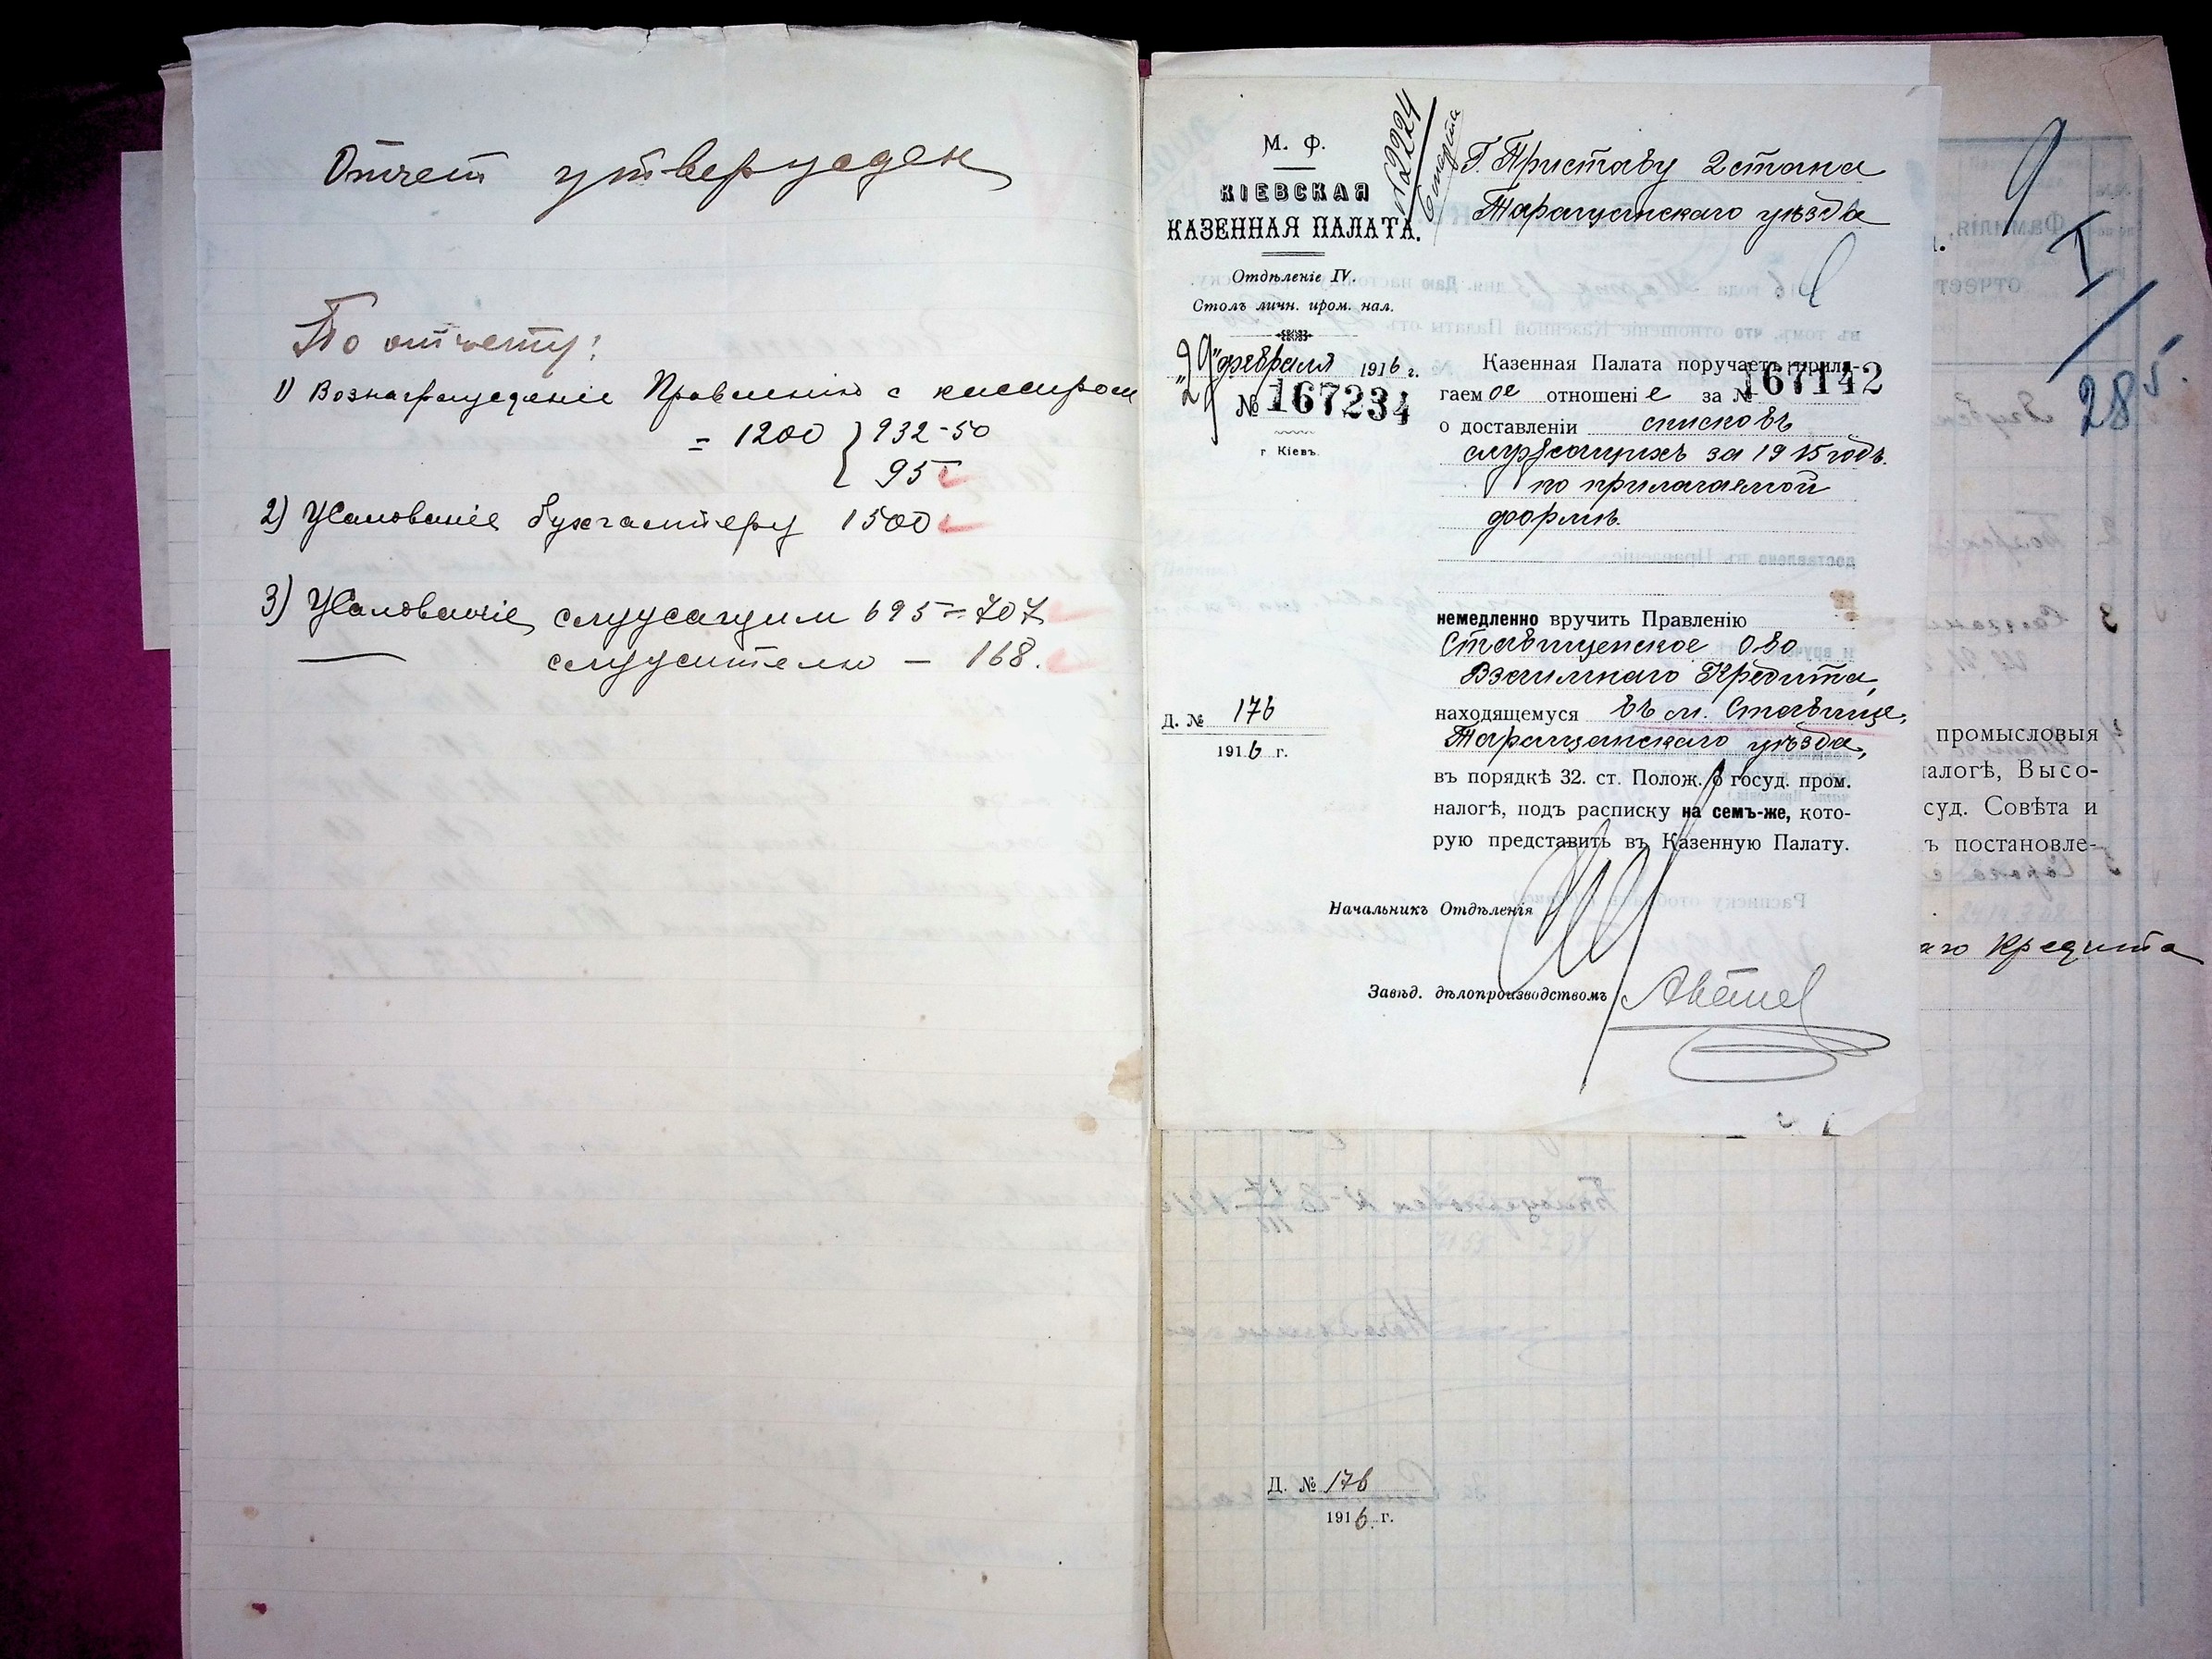 Отчет утвержден
По отчету:
1) Вознаграждение Правлению с кассиром
= 1200 } 932-50
95
2) Жалование бухгалтеру 1500
3) Жалование служащим 695 = 707
— служителю — 168.
М. Ф.
КІЕВСКАЯ
КАЗЕННАЯ ПАЛАТА.
Отдѣленіе IV.
Столъ личн. пром. нал.
"29" февраля 1916 г.
№ 167234
г. Кіевъ.
Д. № 176
1916 г.
№2224
6 марта
Г. Приставу 2 стана
Таращанскаго уѣзда
Казенная Палата поручаетъ прила-
гаемое отношеніе за № 167142
о доставленіи списковъ
служащихъ за 1915 годъ
по прилагаемой
формѣ.
немедленно вручить Правленію
Ставищенское О-во
Взаимнаго Кредита,
находящемуся въ м. Ставище,
Таращанскаго уѣзда,
въ порядкѣ 32. ст. Полож. о госуд. пром.
налогѣ, подъ расписку на семъ-же, кото-
рую представить въ Казенную Палату.
Начальникъ Отдѣленія
Завѣд. дѣлопроизводствомъ
9
I
285
промысловыя
алогѣ, Высо-
суд. Совѣта и
ъ постановле-
аго Кредита
Д. № 176
1916 г.